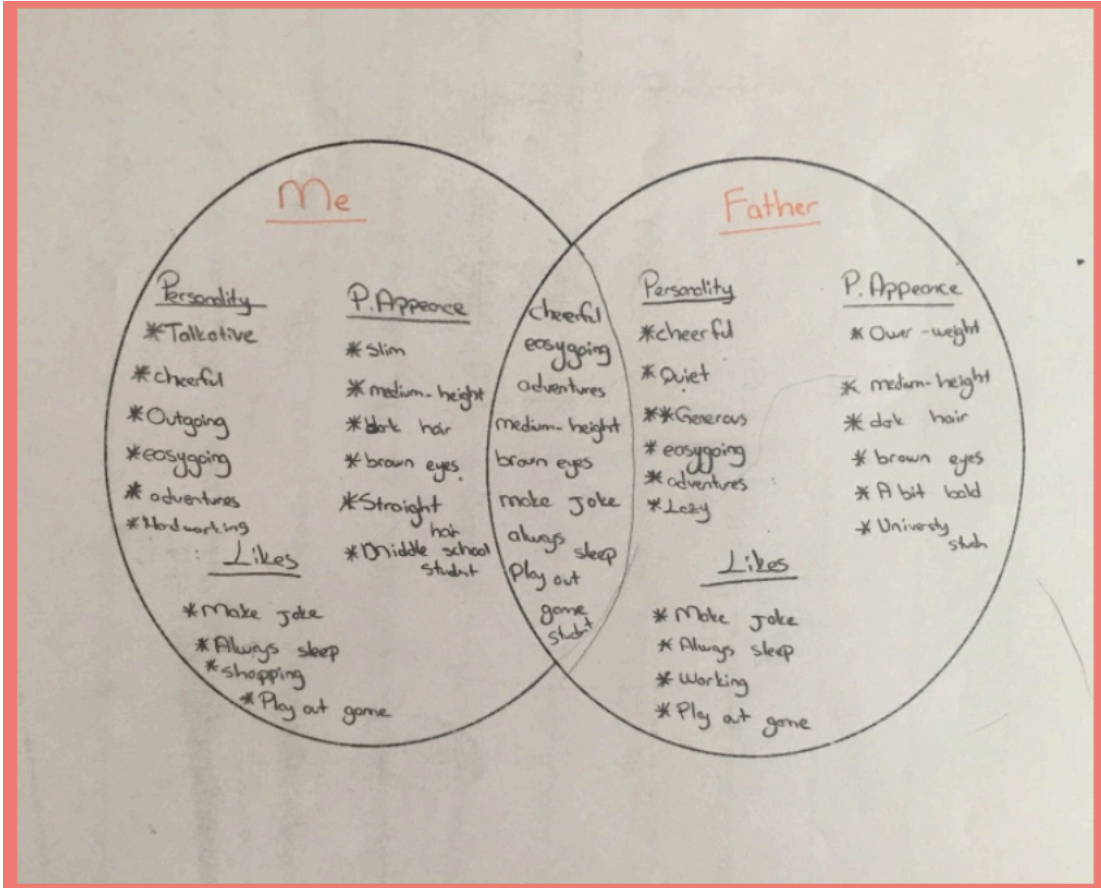 Me
Personality
*Talkative
*cheerful
*Outgoing
*easygoing
*adventures
*Hardworking
P. Appearance
*slim
*medium-height
* hair
*brown eyes
*Straight
hair
*Middle school
student
Likes
*Make joke
*Always sleep
*shopping
*Play out game
cheerful
easygoing
adventures
medium-height
brown eyes
make joke
always
sleep
Play out
game
student
Father
Personality
*cheerful
*Quiet
**Generous
*easygoing
*adventures
*Lazy
P. Appearance
*Ower-weight
*medium-height
*dark hair
*brown eyes
*A bit bald
*University
Likes
*Make joke
*Always sleep
*Working
*Play out game